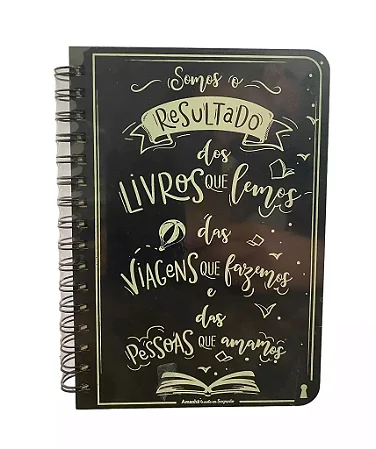 Somos o
ReSULTaDO
dos
LIVROS QUE lemos
das
VIAGeNS QUE fazemos
e
das
PeSSOAS QUE amamos